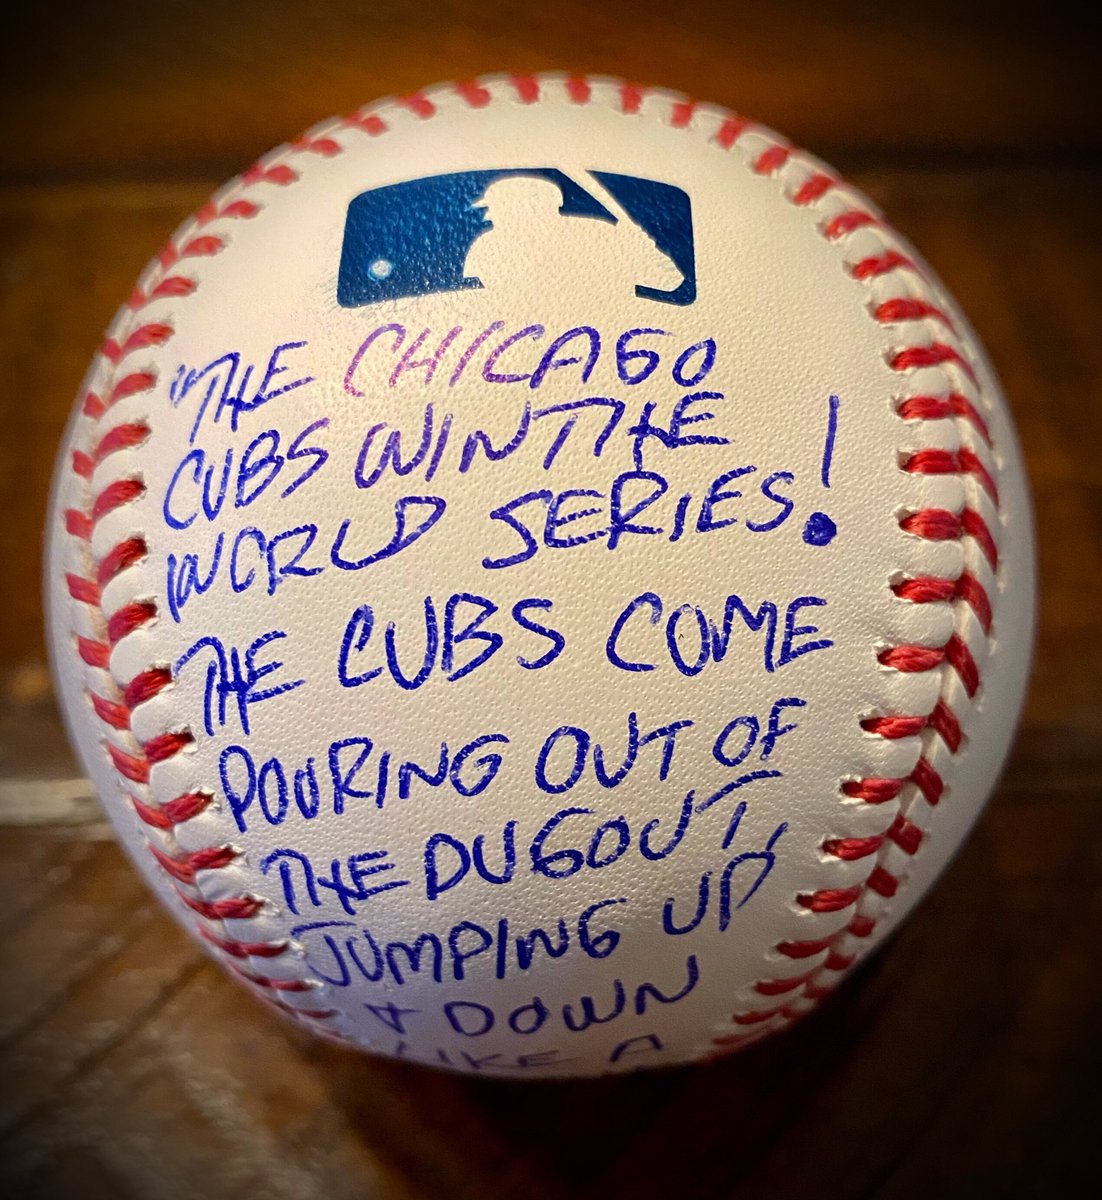 "THE CHICAGO
CUBS WIN THE
WORLD SERIES!
THE CUBS COME
POURING OUT OF
THE DUGOUT,
JUMPING UP,
& DOWN
LIKE A